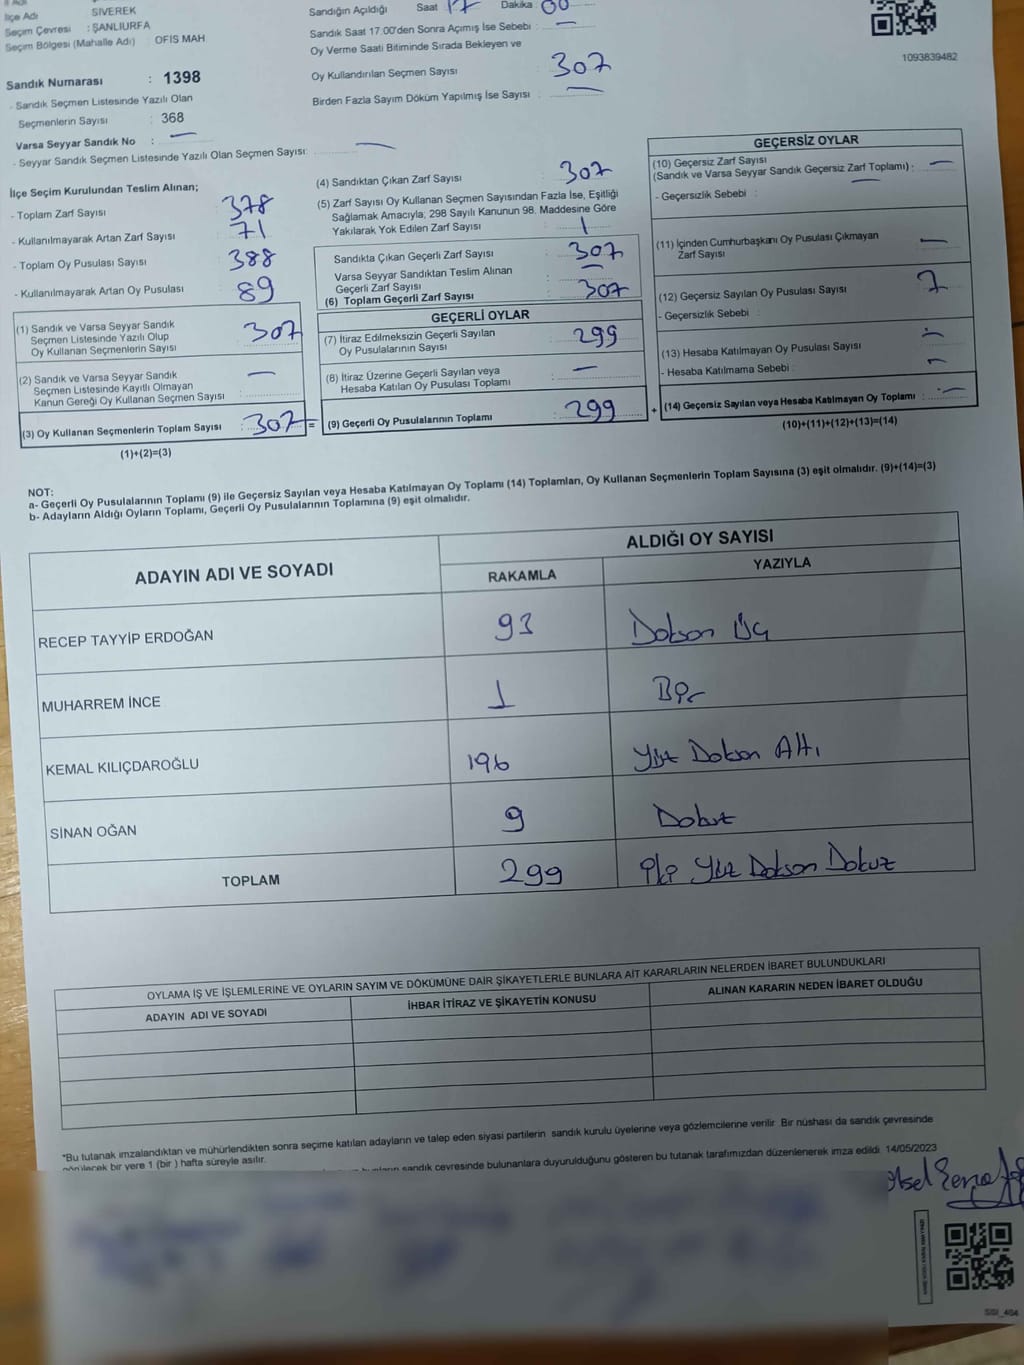 İlçe Adı SİVEREK
Seçim Çevresi : ŞANLIURFA
Seçim Bölgesi (Mahalle Adı) : OFİS MAH.
Sandık Numarası : 1398
- Sandık Seçmen Listesinde Yazılı Olan
Seçmenlerin Sayısı : 368
Varsa Seyyar Sandık No : —
- Seyyar Sandık Seçmen Listesinde Yazılı Olan Seçmen Sayısı: —
Sandığın Açıldığı Saat 17 Dakika 00
Sandık Saat 17.00'den Sonra Açımış İse Sebebi : —
Oy Verme Saati Bitiminde Sırada Bekleyen ve
Oy Kullandırılan Seçmen Sayısı : 307
Birden Fazla Sayım Döküm Yapılmış İse Sayısı : —
1093839482
İlçe Seçim Kurulundan Teslim Alınan;
- Toplam Zarf Sayısı : 378
- Kullanılmayarak Artan Zarf Sayısı : 71
- Toplam Oy Pusulası Sayısı : 388
- Kullanılmayarak Artan Oy Pusulası : 89
(1) Sandık ve Varsa Seyyar Sandık
Seçmen Listesinde Yazılı Olup
Oy Kullanan Seçmenlerin Sayısı : 307
(2) Sandık ve Varsa Seyyar Sandık
Seçmen Listesinde Kayıtlı Olmayan
Kanun Gereği Oy Kullanan Seçmen Sayısı : —
(3) Oy Kullanan Seçmenlerin Toplam Sayısı : 307 =
(1)+(2)=(3)
(4) Sandıktan Çıkan Zarf Sayısı : 307
(5) Zarf Sayısı Oy Kullanan Seçmen Sayısından Fazla İse, Eşitliği
Sağlamak Amacıyla; 298 Sayılı Kanunun 98. Maddesine Göre
Yakılarak Yok Edilen Zarf Sayısı : 1
Sandıkta Çıkan Geçerli Zarf Sayısı : 307
Varsa Seyyar Sandıktan Teslim Alınan
Geçerli Zarf Sayısı : —
(6) Toplam Geçerli Zarf Sayısı : 307
GEÇERLİ OYLAR
(7) İtiraz Edilmeksizin Geçerli Sayılan
Oy Pusulalarının Sayısı : 299
(8) İtiraz Üzerine Geçerli Sayılan veya
Hesaba Katılan Oy Pusulası Toplamı : —
(9) Geçerli Oy Pusulalarının Toplamı : 299 +
GEÇERSİZ OYLAR
(10) Geçersiz Zarf Sayısı
(Sandık ve Varsa Seyyar Sandık Geçersiz Zarf Toplamı) : —
- Geçersizlik Sebebi : —
(11) İçinden Cumhurbaşkanı Oy Pusulası Çıkmayan
Zarf Sayısı : —
(12) Geçersiz Sayılan Oy Pusulası Sayısı : 7
- Geçersizlik Sebebi :
(13) Hesaba Katılmayan Oy Pusulası Sayısı : —
- Hesaba Katılmama Sebebi : —
(14) Geçersiz Sayılan veya Hesaba Katılmayan Oy Toplamı : —
(10)+(11)+(12)+(13)=(14)
NOT:
a- Geçerli Oy Pusulalarının Toplamı (9) ile Geçersiz Sayılan veya Hesaba Katılmayan Oy Toplamı (14) Toplamları, Oy Kullanan Seçmenlerin Toplam Sayısına (3) eşit olmalıdır. (9)+(14)=(3)
b- Adayların Aldığı Oyların Toplamı, Geçerli Oy Pusulalarının Toplamına (9) eşit olmalıdır.
ADAYIN ADI VE SOYADI ALDIĞI OY SAYISI
RAKAMLA YAZIYLA
RECEP TAYYİP ERDOĞAN 93 Dokson Üç
MUHARREM İNCE 1 Bir
KEMAL KILIÇDAROĞLU 196 Yüz Dokson Altı
SİNAN OĞAN 9 Dokuz
TOPLAM 299 İki Yüz Dokson Dokuz
OYLAMA İŞ VE İŞLEMLERİNE VE OYLARIN SAYIM VE DÖKÜMÜNE DAİR ŞİKAYETLERLE BUNLARA AİT KARARLARIN NELERDEN İBARET BULUNDUKLARI
ADAYIN ADI VE SOYADI İHBAR İTİRAZ VE ŞİKAYETİN KONUSU ALINAN KARARIN NEDEN İBARET OLDUĞU
*Bu tutanak imzalandıktan ve mühürlendikten sonra seçime katılan adayların ve talep eden siyasi partilerin sandık kurulu üyelerine veya gözlemcilerine verilir. Bir nüshası da sandık çevresinde
görülecek bir yere 1 (bir) hafta süreyle asılır.
sandık çevresinde bulunanlara duyurulduğunu gösteren bu tutanak tarafımızdan düzenlenerek imza edildi. 14/05/2023